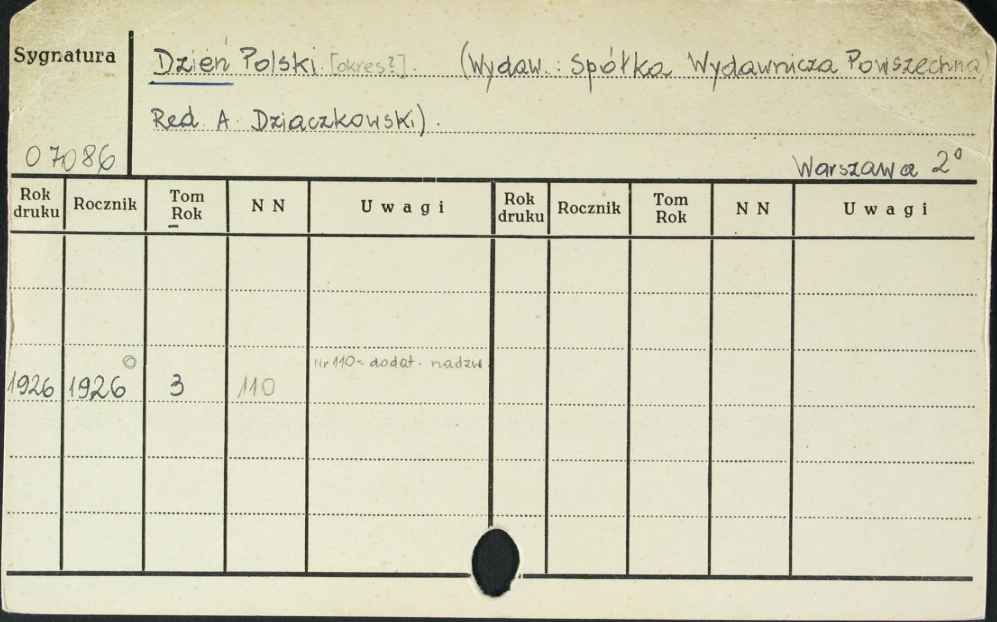 Sygnatura
Dzień Polski [okres?]. (Wydaw.: Spółka Wydawnicza Powszechna
Red A. Dziaczkowski).
07086
Warszawa 2°
Rok druku Rocznik Tom Rok N N Uwagi Rok druku Rocznik Tom Rok N N Uwagi
Nr 110 - dodat. nadzw.
1926 1926 3 110